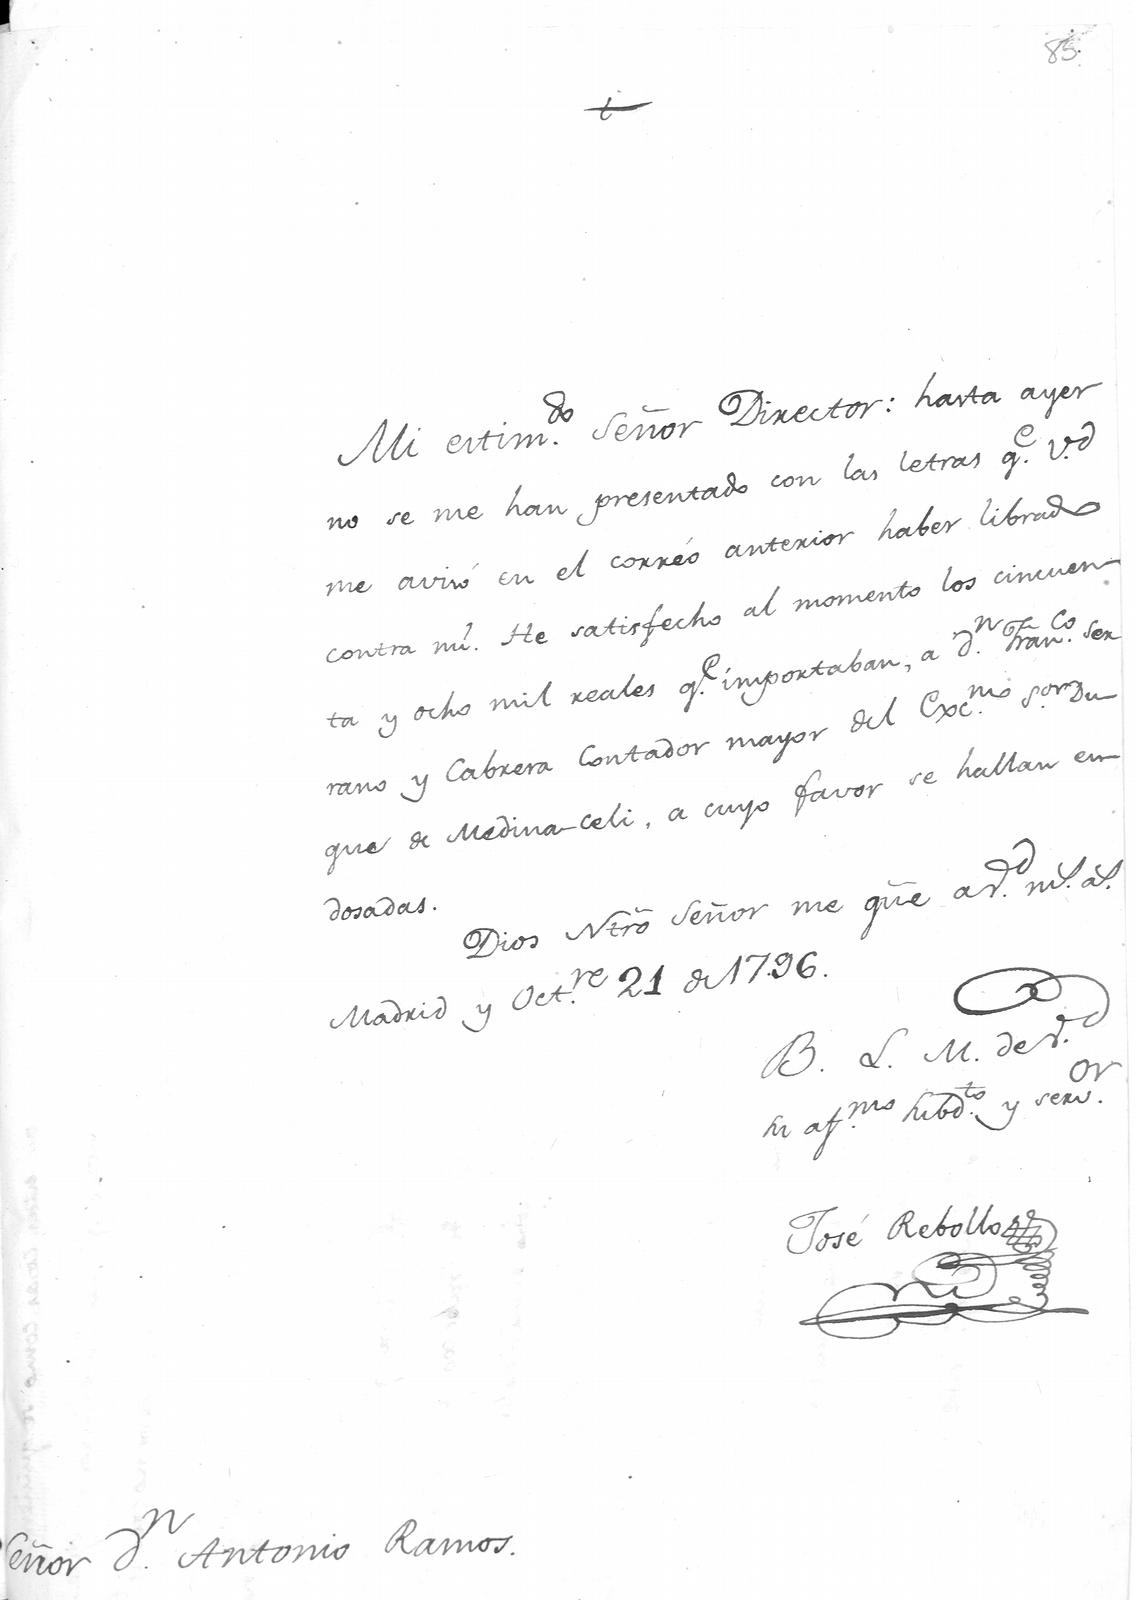 85.
Mi estim.do Señor Director: hasta ayer
no se me han presentado con las letras q.e V.d
me avisó en el corréo anterior haber librado
contra mi. He satisfecho al momento los cincuen-
ta y ocho mil reales q.e importaban, a d.n Fran.co Ser
rano y Cabrera Contador mayor del Exc.mo s.or Du-
que de Medina-celi, a cuyo favor se hallan en-
dosadas.
Dios Ntrõ Señor me gũe a V.d m.s a.s
Madrid y Oct.re 21 de 1796.
B. L. M. de V.d
su af.mo subd.to y serv.or
José Rebollo
Señor d.n Antonio Ramos.